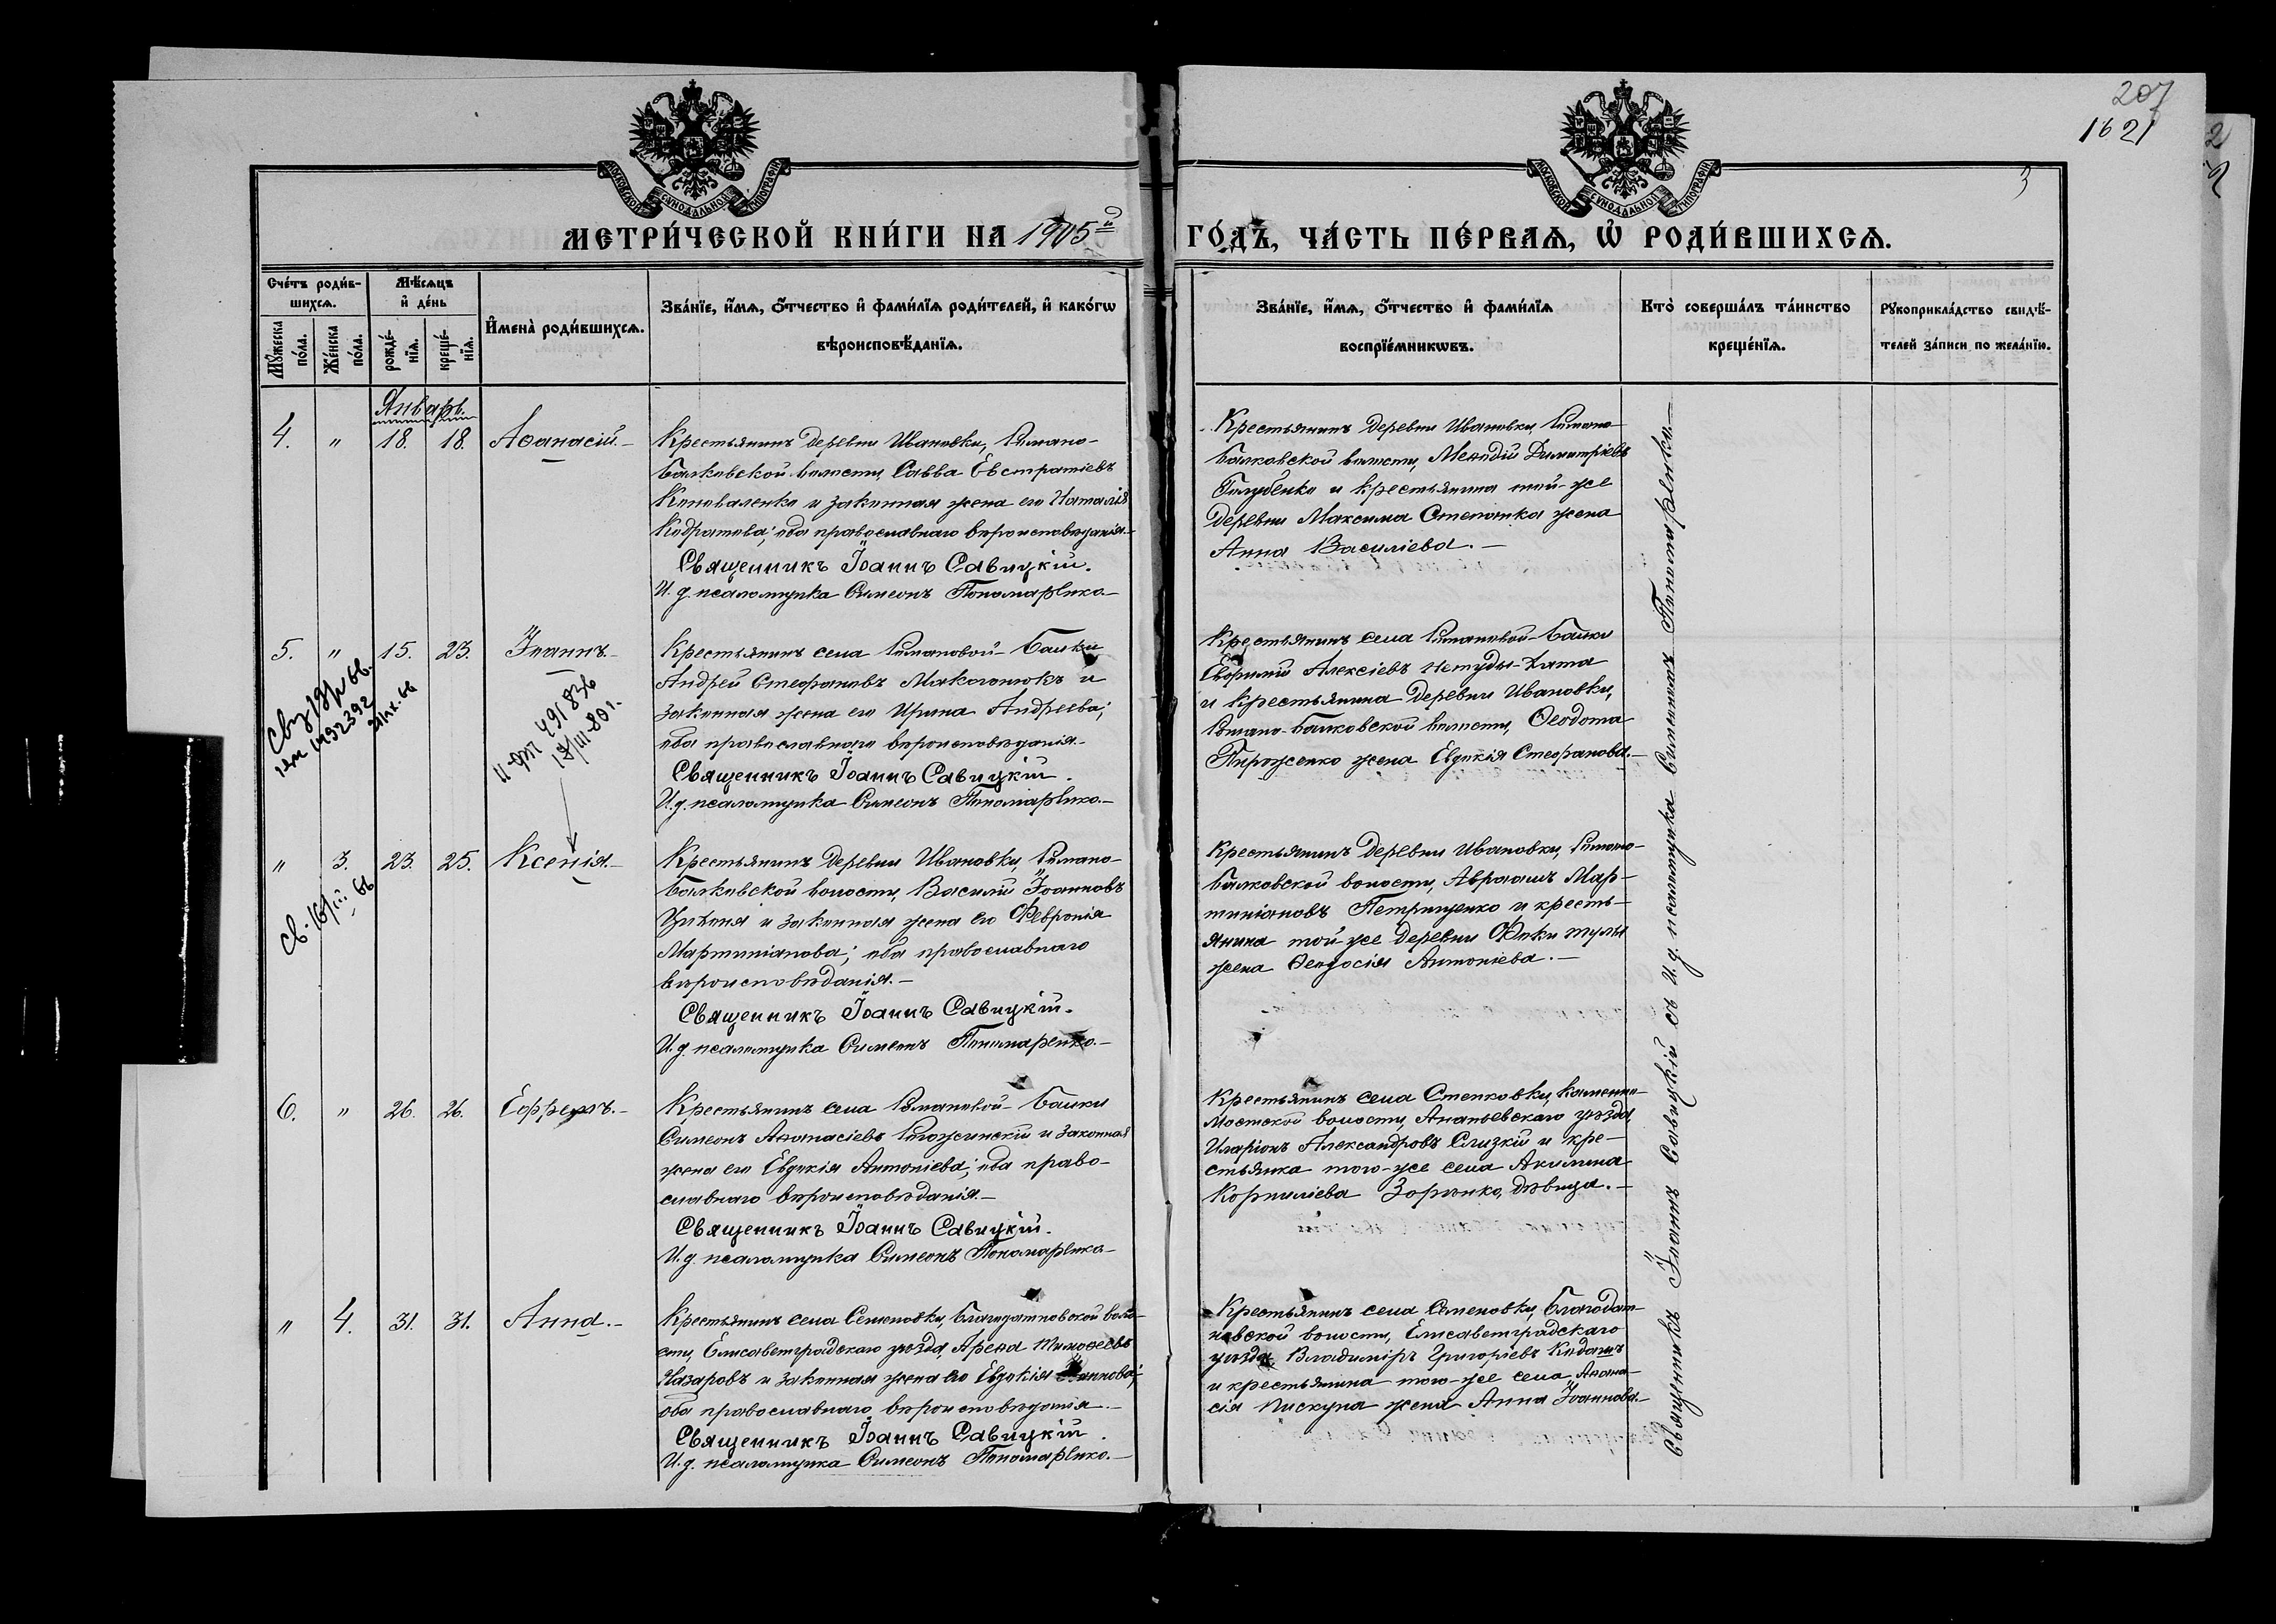 207
1621
3
МОСКОВСКОЙ СѴНОДАЛЬНОЙ ТИПОГРАФІИ
МОСКОВСКОЙ СѴНОДАЛЬНОЙ ТИПОГРАФІИ
МЕТРИ́ЧЕСКОЙ КНИ́ГИ НА 1905й ГО́ДЪ, ЧА́СТЬ ПЕ́РВАѦ, Ѡ҆ РОДИ́ВШИХСѦ.
Сче́тъ роди́в-
шихсѧ.
Мꙋ́жеска
по́ла.
Же́нска
по́ла.
Мѣ́сѧцъ
и҆ де́нь
рожде́-
нїѧ.
креще́-
нїѧ.
И҆мена̀ роди́вшихсѧ.
Зва́нїе, и҆́мѧ, ѻ҆́тчество и҆ фами́лїѧ роди́телей, и҆ како́гѡ
вѣроисповѣ́данїѧ.
Зва́нїе, и҆́мѧ, ѻ҆́тчество и҆ фами́лїѧ
воспрїе́мникѡвъ.
Кто̀ соверша́лъ та́инство
креще́нїѧ.
Рꙋкоприкла́дство свидѣ́-
телей за́писи по жела́нїю.
Январь.
4. " 18. 18. Аѳанасій.-
Крестьянинъ деревни Ивановки, Романо-
Балковской волости, Савва Евстратіевъ
Коноваленко и законная жена его Наталія
Кодратова; оба православнаго вѣроисповѣданія.-
Священникъ Іоаннъ Савицкій.
И. д. псаломщика Симеонъ Пономаренко.-
Крестьянинъ деревни Ивановки, Романо-
Балковской волости, Меѳодій Димитріевъ
Голубенко и крестьянина той-же
деревни Максима Степанка жена
Анна Василіева.-
5. " 15. 23. Іоаннъ.-
Крестьянинъ села Романовой-Балки
Андрей Стефановъ Макогонюкъ и
законная жена его Ирина Андреева;
оба православнаго вѣроисповѣданія.-
Священникъ Іоаннъ Савицкій.
И. д. псаломщика Симеонъ Пономаренко.-
Крестьянинъ села Романовой-Балки
Евфимій Алексіевъ Нетуды-Хата
и крестьянина деревни Ивановки,
Романо-Балковской волости, Ѳеодота
Пироженко жена Евдокія Стефанова.-
66.
1492392
II-ЯТ 491836
18/III-80 г.
" 3. 23. 25. Ксенія.-
Св. 16/III 66
Крестьянинъ деревни Ивановки, Романо-
Балковской волости, Василій Іоанновъ
и законная жена его Февронія
Мартиніанова; оба православнаго
вѣроисповѣданія.-
Священникъ Іоаннъ Савицкій.
И. д. псаломщика Симеонъ Пономаренко.-
Крестьянинъ деревни Ивановки, Романо-
Балковской волости, Авраамъ Мар-
тиніановъ Петрищенко и кресть-
янина той-же деревни Фоки
жена Ѳеодосія Антоніева.-
6. " 26. 26. Ефремъ.-
Крестьянинъ села Романовой-Балки
Симеонъ Аѳанасіевъ и законная
жена его Евдокія Антоніева; оба право-
славнаго вѣроисповѣданія.-
Священникъ Іоаннъ Савицкій.
И. д. псаломщика Симеонъ Пономаренко.-
Крестьянинъ села Степковки, Каменно-
Мостской волости, Ананьевскаго уѣзда,
Иларіонъ Александровъ Слизкій и кре-
стьянка того-же села Акилина
Корниліева дѣвица.-
" 4. 31. 31. Анна.-
Крестьянинъ села Семеновки, Благодатновской воло-
сти, Елисаветградскаго уѣзда, Арефа Тимоѳеевъ
Назаровъ и законная жена его Евдокія Іоаннова;
оба православнаго вѣроисповѣданія.-
Священникъ Іоаннъ Савицкій.
И. д. псаломщика Симеонъ Пономаренко.-
Крестьянинъ села Семеновки, Благодат-
новской волости, Елисаветградскаго
уѣзда, Владиміръ Григоріевъ
и крестьянина того-же села, Аѳана-
сія Пискуна жена Анна Іоаннова.-
Священникъ Іоаннъ Савицкій съ И. д. псаломщика Симеономъ Пономаренко.-